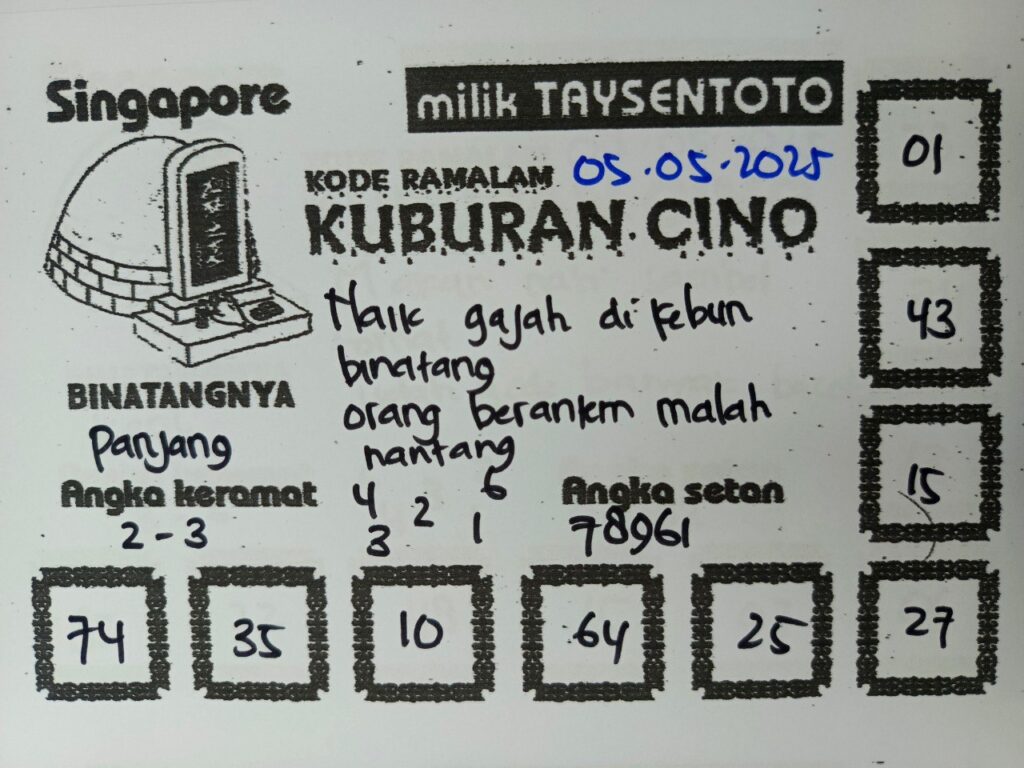 Singapore
milik TAYSENTOTO
KODE RAMALAM 05.05.2025
KUBURAN CINO
Naik gajah di kebun
binatang
orang berantem malah
nantang
BINATANGNYA
Panjang
Angka keramat
2 - 3
4 6
2
3 1
Angka setan
78961
01
43
15
27
74 35 10 64 25